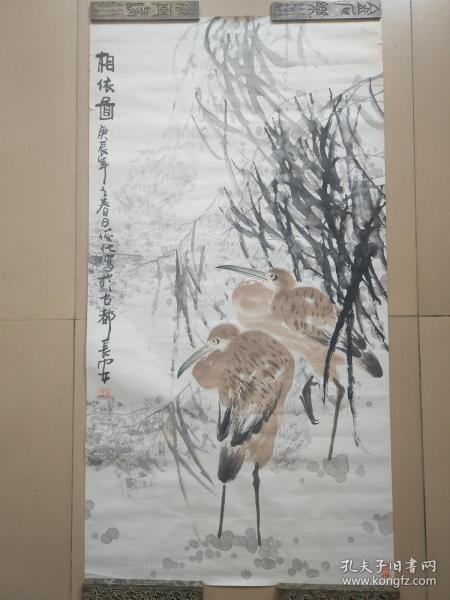 相依啚
庚辰年之春日俊化写于古都長安
孔夫子旧书网
www.kongfz.com